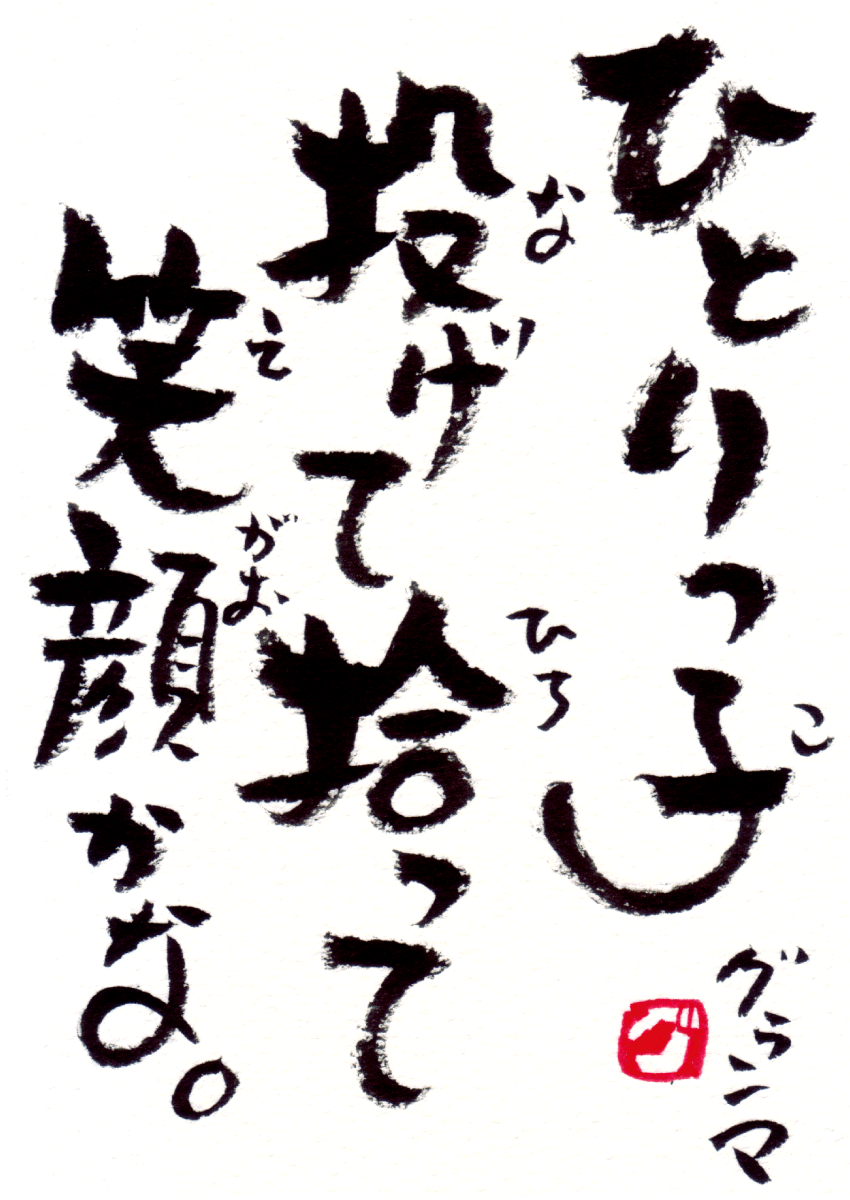 ひとりっ子
こ
投げて拾って
な
ひろ
笑顔かな。
え
がお
グランマ
グ